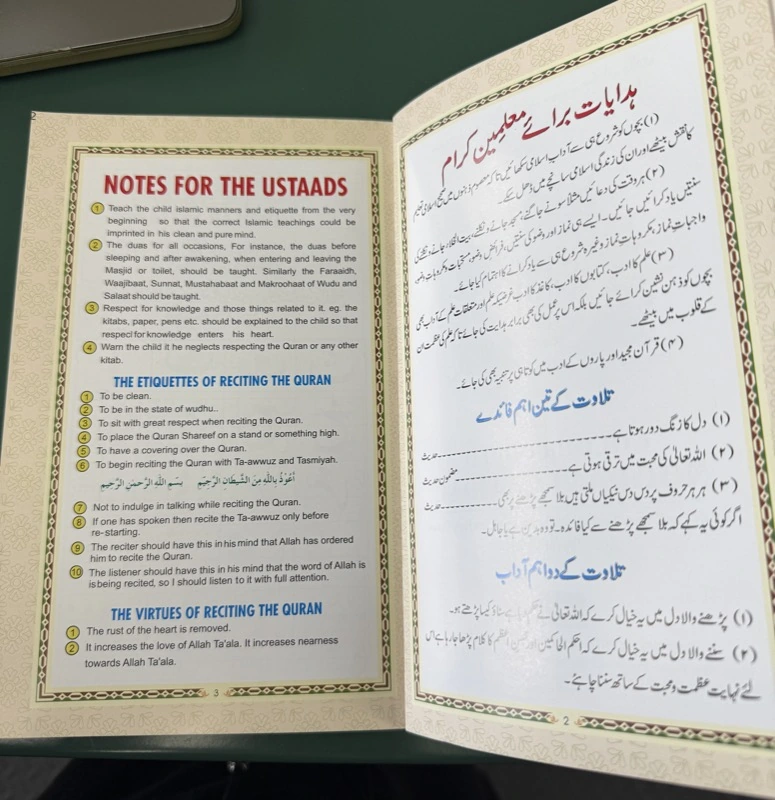 2
NOTES FOR THE USTAADS
1 Teach the child Islamic manners and etiquette from the very
beginning so that the correct Islamic teachings could be
imprinted in his clean and pure mind.
2 The duas for all occasions, For instance, the duas before
sleeping and after awakening, when entering and leaving the
Masjid or toilet, should be taught. Similarly the Faraaidh,
Waajibaat, Sunnat, Mustahabaat and Makroohaat of Wudu and
Salaat should be taught.
3 Respect for knowledge and those things related to it. eg. the
kitabs, paper, pens etc. should be explained to the child so that
respect for knowledge enters his heart.
4 Warn the child it he neglects respecting the Quran or any other
kitab.
THE ETIQUETTES OF RECITING THE QURAN
1 To be clean.
2 To be in the state of wudhu..
3 To sit with great respect when reciting the Quran.
4 To place the Quran Shareef on a stand or something high.
5 To have a covering over the Quran.
6 To begin reciting the Quran with Ta-awwuz and Tasmiyah.
اَعُوْذُ بِاللّٰهِ مِنَ الشَّيْطَانِ الرَّجِيْمِ بِسْمِ اللّٰهِ الرَّحْمٰنِ الرَّحِيْمِ
7 Not to indulge in talking while reciting the Quran.
8 If one has spoken then recite the Ta-awwuz only before
re-starting.
9 The reciter should have this in his mind that Allah has ordered
him to recite the Quran.
10 The listener should have this in his mind that the word of Allah is
is being recited, so I should listen to it with full attention.
THE VIRTUES OF RECITING THE QURAN
1 The rust of the heart is removed.
2 It increases the love of Allah Ta'ala. It increases nearness
towards Allah Ta'ala.
3
ہدایات برائے معلمین کرام
(۱) بچوں کو شروع ہی سے آداب اسلامی سکھائیں تاکہ معصوم ذہنوں میں صحیح اسلامی تعلیم
کا نقش بیٹھے اور ان کی زندگی اسلامی سانچے میں ڈھل سکے۔
(۲) ہر وقت کی دعائیں مثلاً سونے جاگنے، مسجد جانے و نکلنے، بیت الخلاء جانے و نکلنے کی
سنتیں یاد کرائیں جائیں۔ ایسے ہی نماز اور وضو کی سنتیں، فرائض وضو، مستحبات و مکروہات وضو
واجبات نماز، مکروہات نماز وغیرہ شروع ہی سے یاد کرانے کا اہتمام کیا جائے۔
(۳) علم کا ادب، کتابوں کا ادب، کاغذ کا ادب غرضیکہ علم اور متعلقات علم کے آداب بھی
بچوں کو ذہن نشین کرائے جائیں بلکہ اس پر عمل کی بھی برابر ہدایت کی جائے تاکہ علم کی عظمت ان
کے قلوب میں بیٹھے۔
(۴) قرآن مجید اور پاروں کے ادب میں کوتاہی پر تنبیہ بھی کی جائے۔
تلاوت کے تین اہم فائدے
(۱) دل کا زنگ دور ہوتا ہے۔ حدیث
(۲) اللہ تعالیٰ کی محبت میں ترقی ہوتی ہے۔ مضمون حدیث
(۳) ہر ہر حروف پر دس دس نیکیاں ملتی ہیں بلا سمجھے پڑھنے پر بھی۔ حدیث
اگر کوئی یہ کہے کہ بلا سمجھے پڑھنے سے کیا فائدہ۔ تو وہ بددین ہے یا جاہل۔
تلاوت کے دو اہم آداب
(۱) پڑھنے والا دل میں یہ خیال کرے کہ اللہ تعالیٰ نے حکم دیا ہے سناؤ کیسا پڑھتے ہو۔
(۲) سننے والا دل میں یہ خیال کرے کہ احکم الحاکمین اور محسن اعظم کا کلام پڑھا جا رہا ہے اس
لئے نہایت عظمت و محبت کے ساتھ سننا چاہئے۔
2